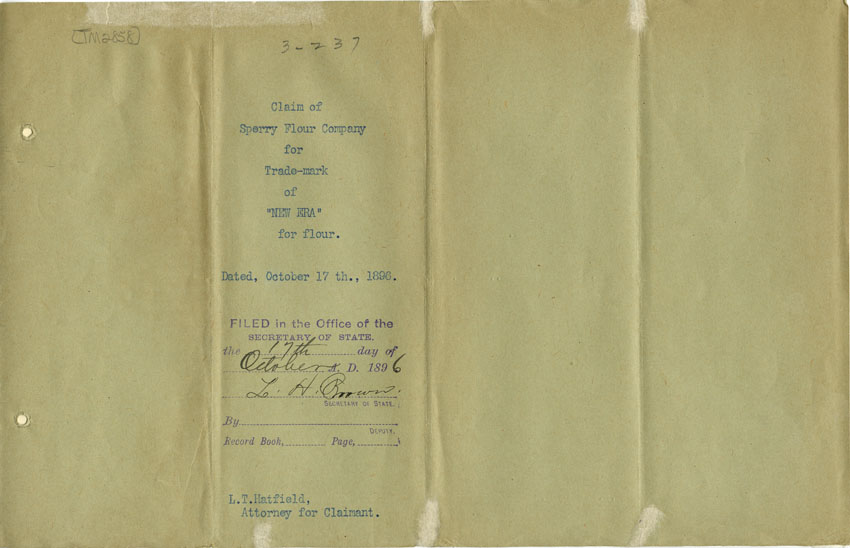 TM2858
3-237
Claim of
Sperry Flour Company
for
Trade-mark
of
"NEW ERA"
for flour.
Dated, October 17 th., 1896.
FILED in the Office of the
SECRETARY OF STATE.
the 17th day of
October A. D. 1896
L. H. Brown.
SECRETARY OF STATE.
By
DEPUTY.
Record Book, Page,
L.T.Hatfield,
Attorney for Claimant.